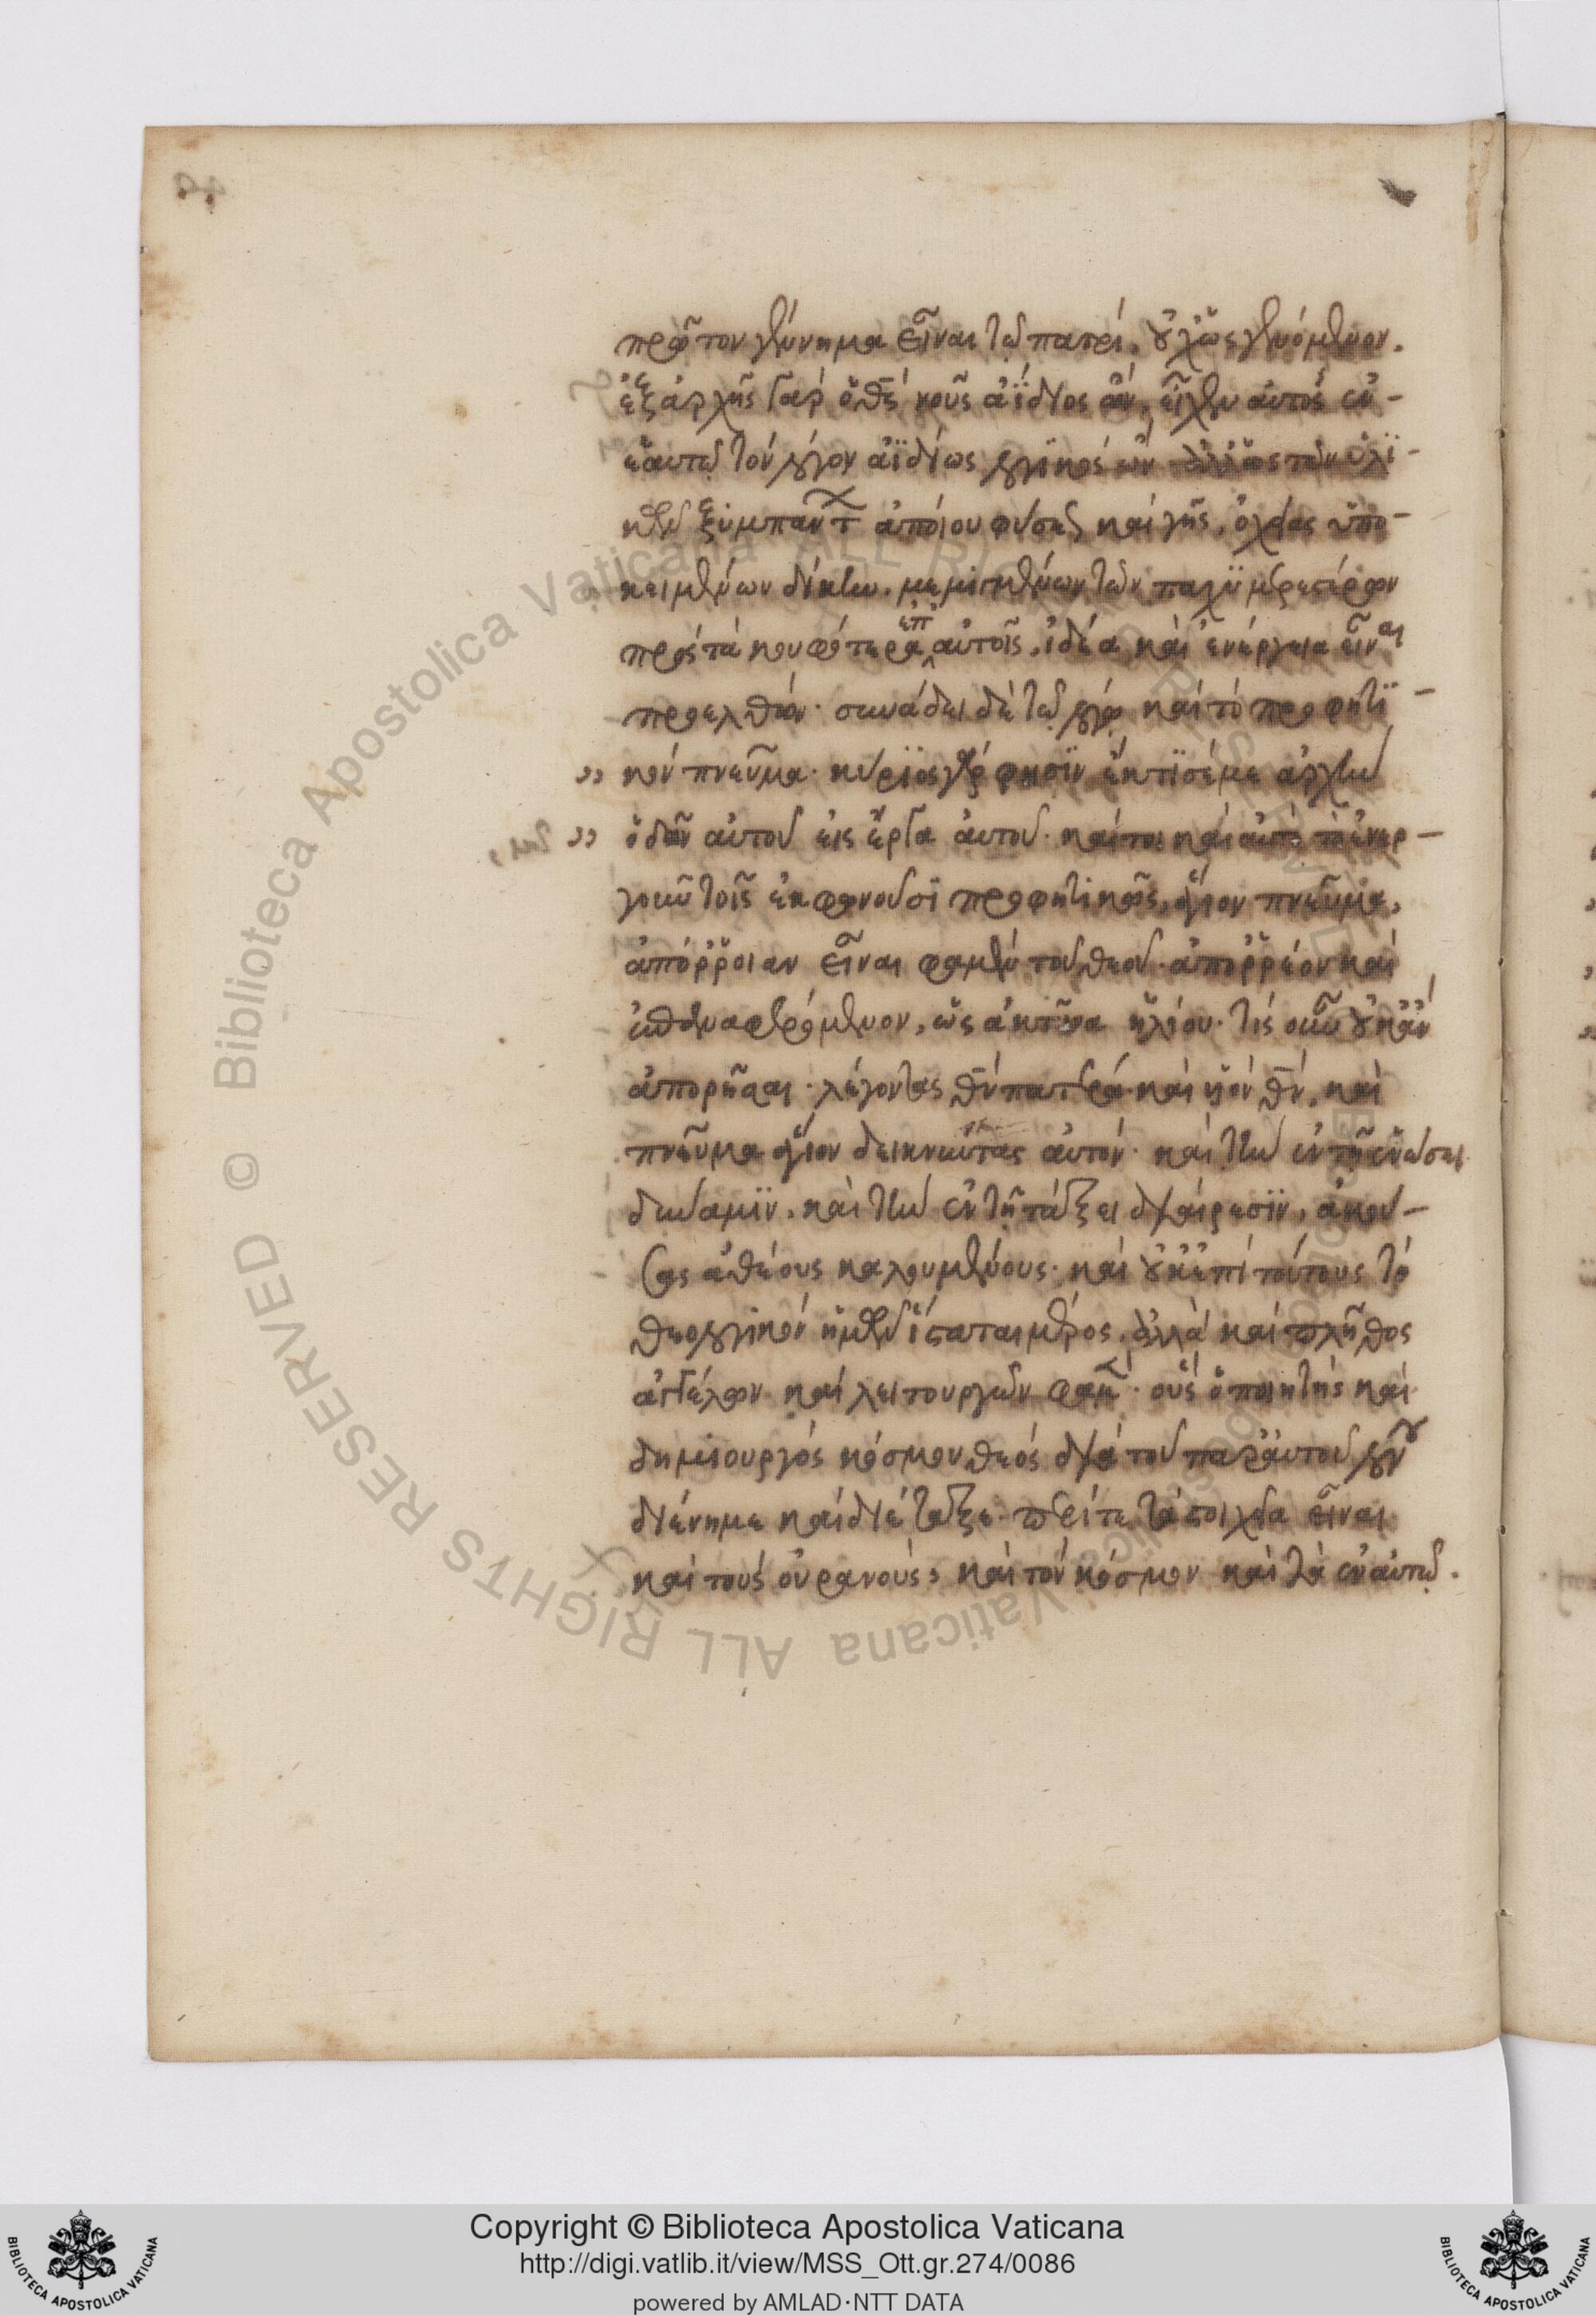 πρῶτον γέννημα εἶναι τῷ πατρί. οὐχ ὡς γενόμενον.
ἐξ ἀρχῆς γὰρ ὁ θς νοῦς ἀΐδιος ὢν, εἶχεν αὐτὸς ἐν-
ἑαυτῷ τὸν λόγον ἀϊδίως λογϊκὸς ὢν ἀλλ' ὡς τῶν ὑλϊ-
κῶν ξυμπάντ ἀποίου φύσεως καὶ γῆς, ὀχείας ὑπο-
κειμένων δίκην. μεμιγμένων τῶν παχϋμερεστέρων
πρὸς τὰ κουφότερα ἐπ' αὐτοῖς, ἰδέα καὶ ἐνέργεια εἶναι
προελθών. συνάδει δὲ τῷ λόγῳ καὶ τὸ προφητϊ-
κὸν πνεῦμα. κύρϊος γάρ φησϊν ἔκτϊσέ με ἀρχὴν
ὁδῶν αὐτοῦ εἰς ἔργα αὐτοῦ. καίτοι καὶ αὐτὸ τὸ ἐνερ-
γοῦν τοῖς ἐκφωνοῦσϊ προφητικῶς, ἅγιον πνεῦμα,
ἀπόρροιαν εἶναι φαμὲν τοῦ θεοῦ. ἀπορρέον καὶ
ἐπαναφερόμενον, ὡς ἀκτῖνα ἡλίου. τίς οὖν οὐκ ἂν
ἀπορῆσαι. λέγοντας θν πατέρα καὶ υἱὸν θν, καὶ
πνεῦμα ἅγιον δεικνύντας αὐτῶν. καὶ τὴν ἐν τῇ ἑνώσει
δύναμϊν, καὶ τὴν ἐν τῇ τάξει διαίρεσϊν, ἀκού-
σας ἀθέους καλουμένους. καὶ οὐκ ἐπὶ τούτους τὸ
θεολογικὸν ἡμῶν ἵσταται μέρος, ἀλλὰ καὶ πλῆθος
ἀγγέλων καὶ λειτουργῶν φαμὲν. οὓς ὁ ποιητὴς καὶ
δημιουργὸς κόσμου θεὸς διὰ τοῦ παρ' αὐτοῦ λόγου
διένημε καὶ διέταξε. περί τε τὰ στοιχεῖα εἶναι
καὶ τοὺς οὐρανοὺς, καὶ τὸν κόσμον καὶ τὰ ἐν αὐτῷ.
Copyright © Biblioteca Apostolica Vaticana
http://digi.vatlib.it/view/MSS_Ott.gr.274/0086
powered by AMLAD·NTT DATA
BIBLIOTECA APOSTOLICA VATICANA
BIBLIOTECA APOSTOLICA VATICANA
© Biblioteca Apostolica Vaticana ALL RIGHTS RESERVED